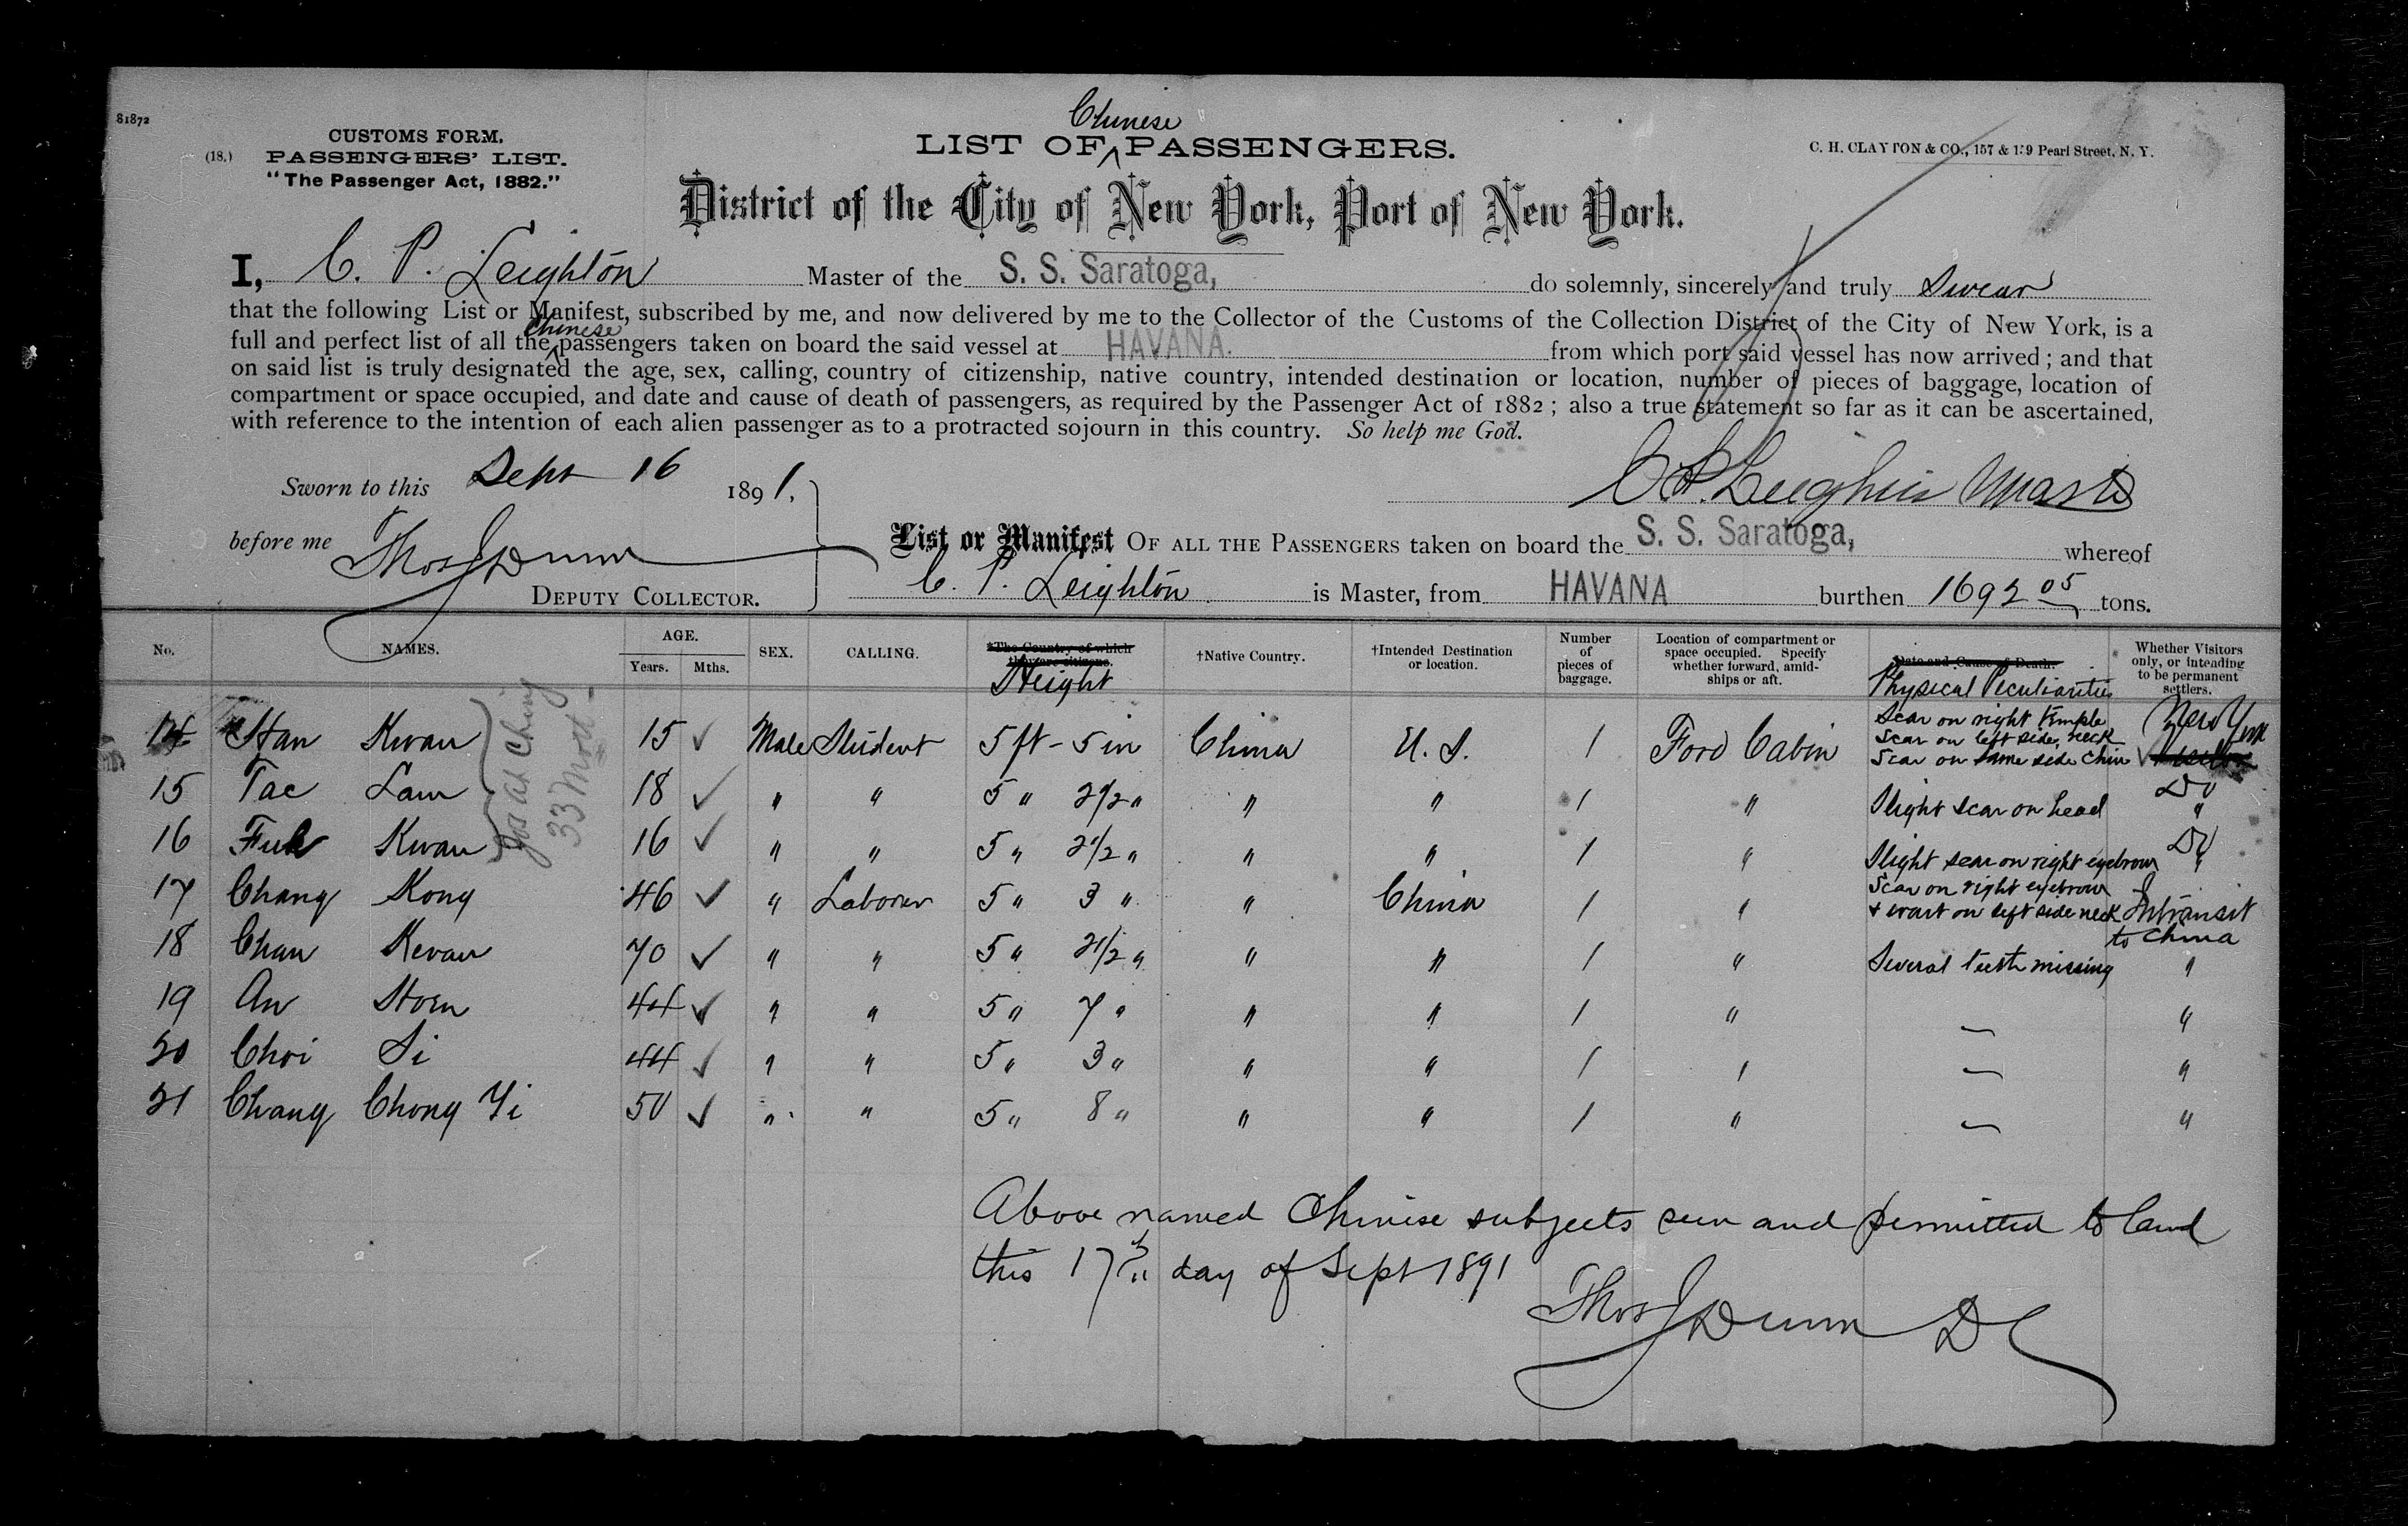 81872
CUSTOMS FORM.
(18.) PASSENGERS' LIST.
"The Passenger Act, 1882."
Chinese
LIST OF ^ PASSENGERS.
C. H. CLAYTON & CO., 157 & 159 Pearl Street, N. Y.
District of the City of New York, Port of New York.
I, C. P. Leighton Master of the S. S. Saratoga, do solemnly, sincerely and truly swear
that the following List or Manifest, subscribed by me, and now delivered by me to the Collector of the Customs of the Collection District of the City of New York, is a
full and perfect list of all the ^ Chinese passengers taken on board the said vessel at HAVANA. from which port said vessel has now arrived; and that
on said list is truly designated the age, sex, calling, country of citizenship, native country, intended destination or location, number of pieces of baggage, location of
compartment or space occupied, and date and cause of death of passengers, as required by the Passenger Act of 1882; also a true statement so far as it can be ascertained,
with reference to the intention of each alien passenger as to a protracted sojourn in this country. So help me God.
Sworn to this Sept 16 1891.
C. P. Leighton Master
before me Thos J Dunn
DEPUTY COLLECTOR.
List or Manifest OF ALL THE PASSENGERS taken on board the S. S. Saratoga, whereof
C. P. Leighton is Master, from HAVANA burthen 1692 05 tons.
No. NAMES. AGE. Years. Mths. SEX. CALLING. *The Country of which they are citizens. Height †Native Country. †Intended Destination or location. Number of pieces of baggage. Location of compartment or space occupied. Specify whether forward, amidships or aft. Date and Cause of Death. Physical Peculiarities Whether Visitors only, or intending to be permanent settlers.
14 Han Kwan 15 ✓ Male Student 5 ft - 5 in China U. S. 1 Ford Cabin Scar on right temple Scar on left side, neck Scar on same side chin New York
15 Tac Lam 18 ✓ " " 5 " 2 1/2 " " " 1 " Slight scar on head Do "
16 Fuk Kwan 16 ✓ " " 5 " 2 1/2 " " " 1 " Slight scar on right eyebrow Do "
17 Chang Kong 46 ✓ " Laborer 5 " 3 " " China 1 " Scar on right eyebrow + wart on left side neck Intransit to China
18 Chan Kevan 70 ✓ " " 5 " 2 1/2 " " " 1 " Several teeth missing "
19 An Hoen 44 ✓ " " 5 " 7 " " " 1 " — "
20 Choi Si 44 ✓ " " 5 " 3 " " " 1 " — "
21 Chang Chong Yi 50 ✓ " " 5 " 8 " " " 1 " — "
Jos Ah Ching
33 Mott
Above named Chinese subjects seen and permitted to land
this 17th day of Sept 1891
Thos J Dunn DC